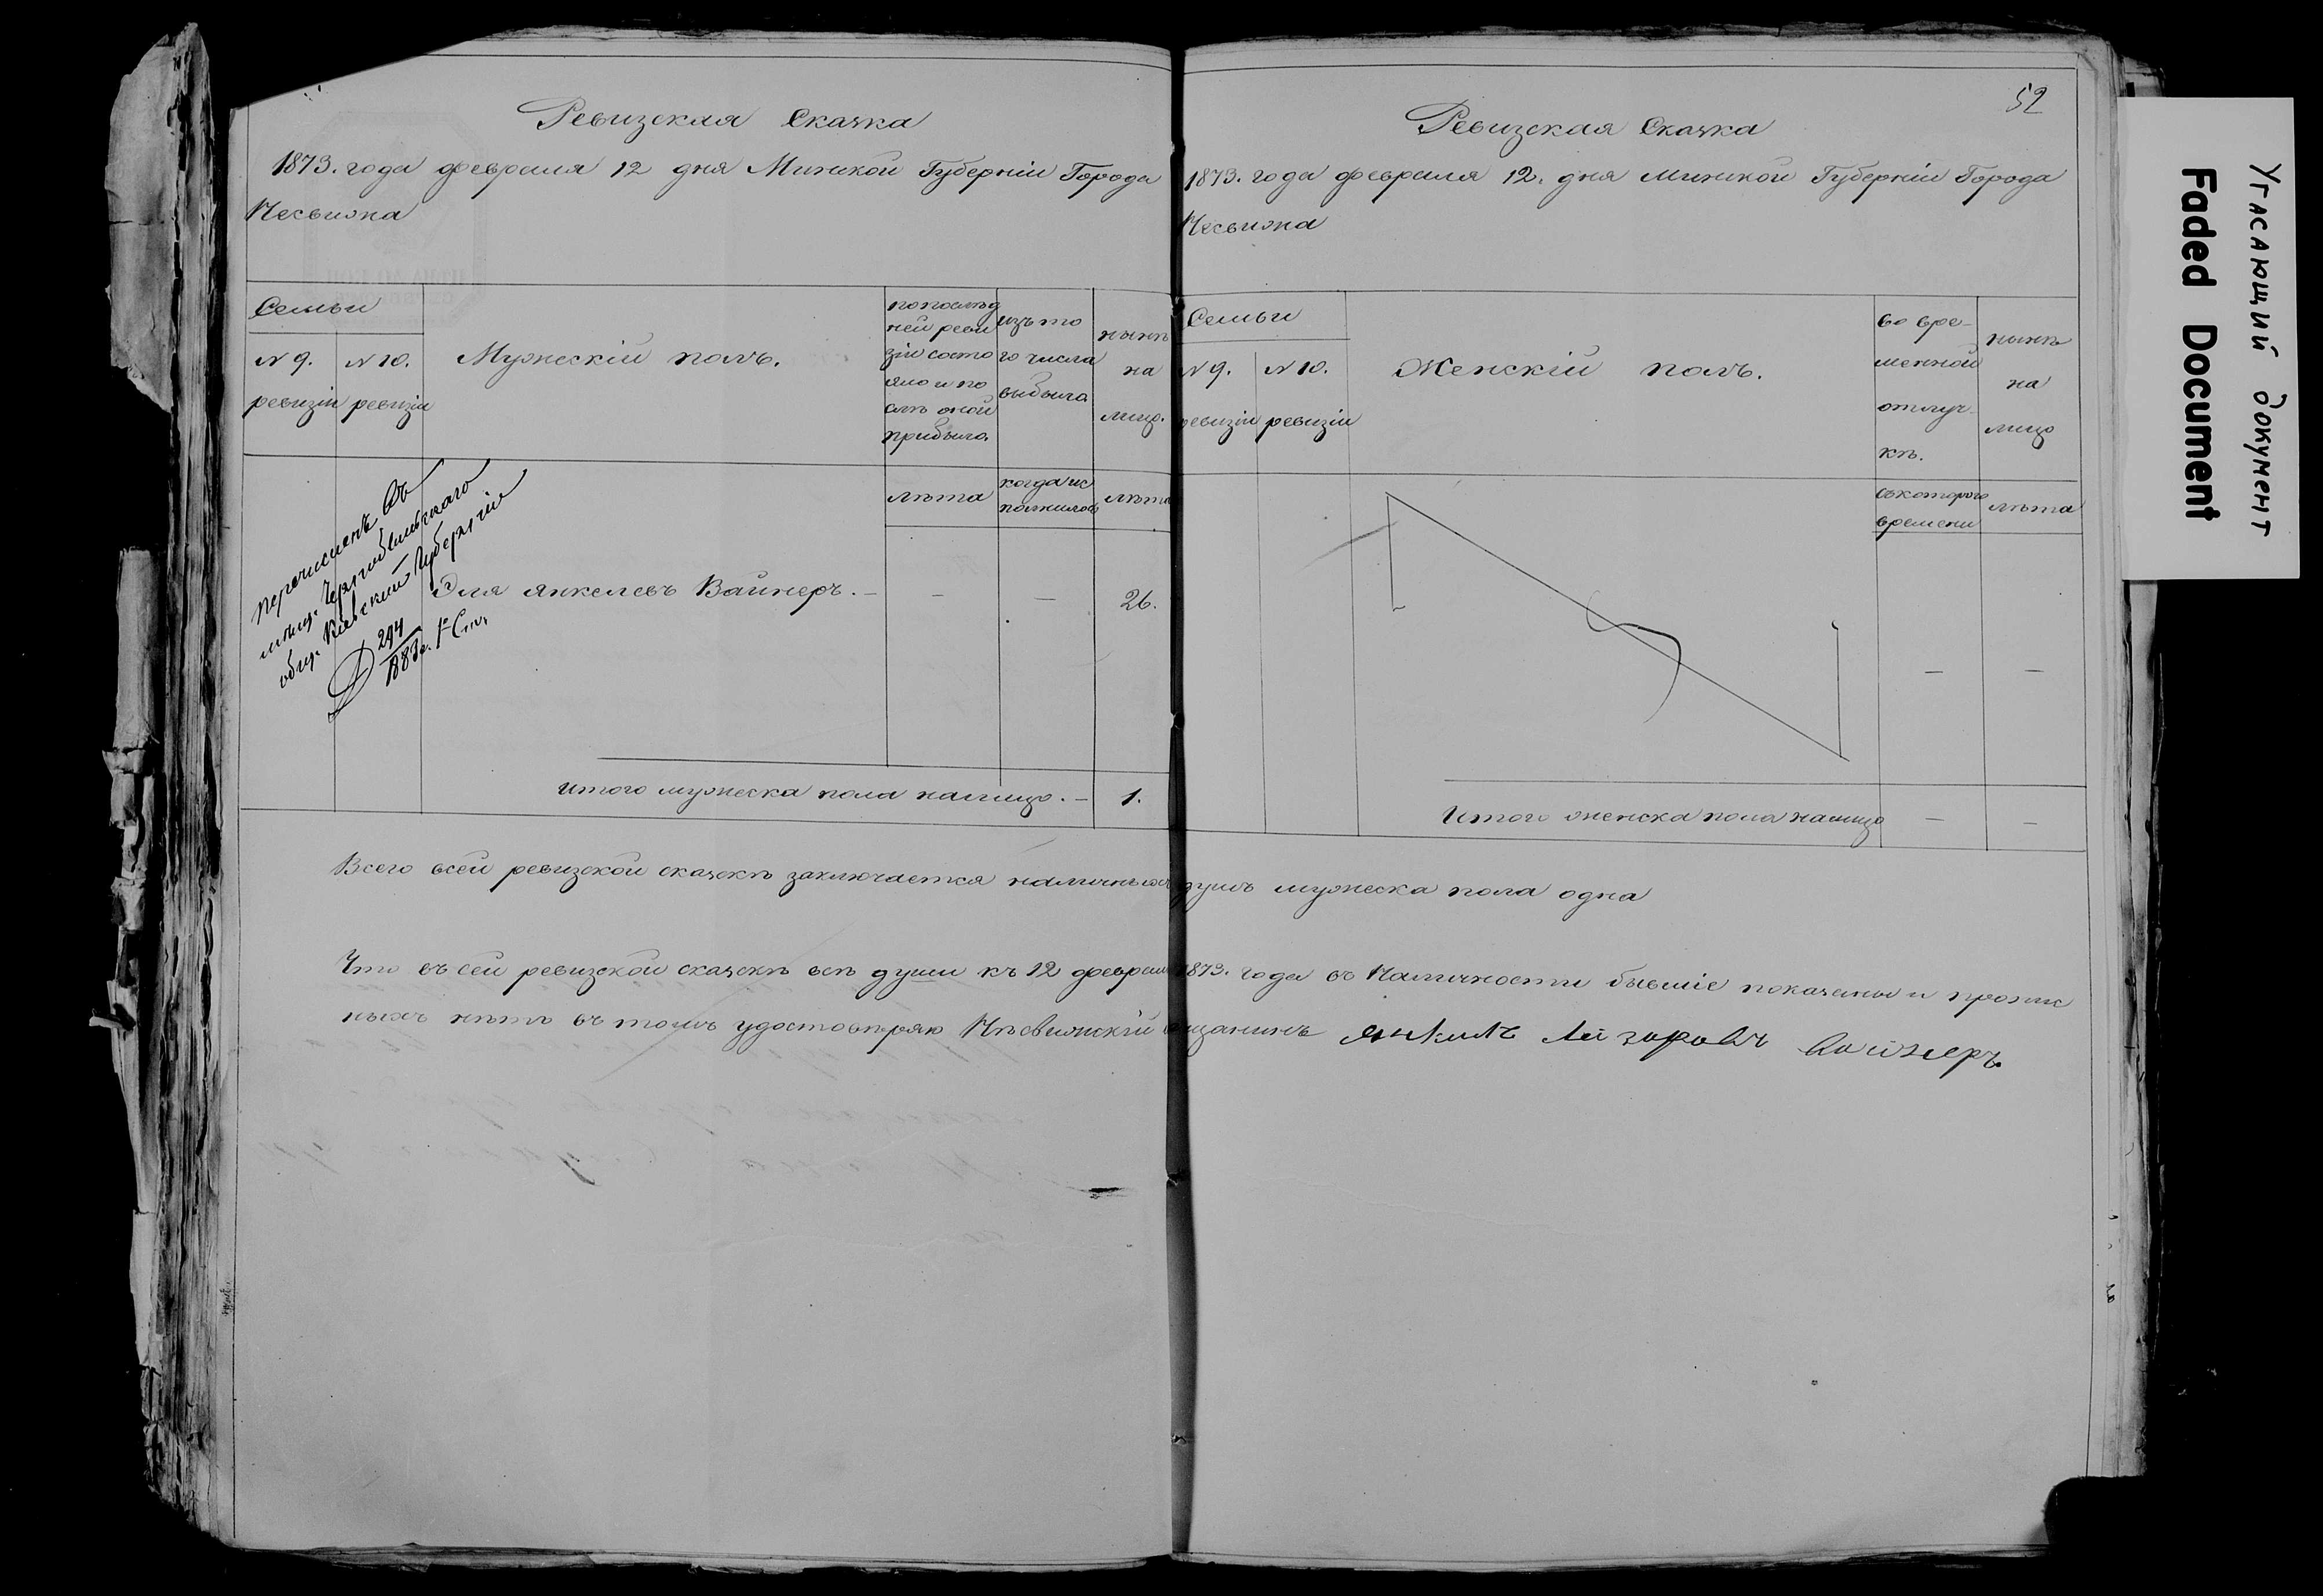 Ревизская Сказка
1873. года февраля 12 дня Минской Губерніи Города
Несвижа
Семьи
N 9. ревизіи
N 10. ревизіи
Мужескій полъ.
по послѣд
ней реви
зіи состо
яло и по
слѣ оной
прибыло.
изъ то
го числа
выбыло
нынѣ
на
лицо.
лѣта
когда
лѣта
перечисленъ въ
мѣщ. Чернобыльскаго
общ. Кіевской Губерніи
294
1-е Ст.
Эля Янкелевъ Вайнеръ. — — — 26.
Итого мужеска пола налицо. — 1.
52
Ревизская Сказка
1873. года февраля 12. дня Минской Губерніи Города
Несвижа
Семьи
N 9. ревизіи
N 10. ревизіи
Женскій полъ.
во вре-
менной
отлуч-
кѣ.
нынѣ
на
лицо
съ котораго
времени
лѣта
— —
Итого женска пола налицо — —
Всего въ сей ревизской сказкѣ заключается наличныхъ душъ мужеска пола одна
Что въ сей ревизской сказкѣ всѣ души къ 12 февраля 1873. года въ Наличности бывшіе показаны и пропис
ныхъ нѣтъ въ томъ удостовѣряю Несвижскій мѣщанинъ Янкель Лейзоровъ Вайнеръ.
Угасающий документ
Faded Document